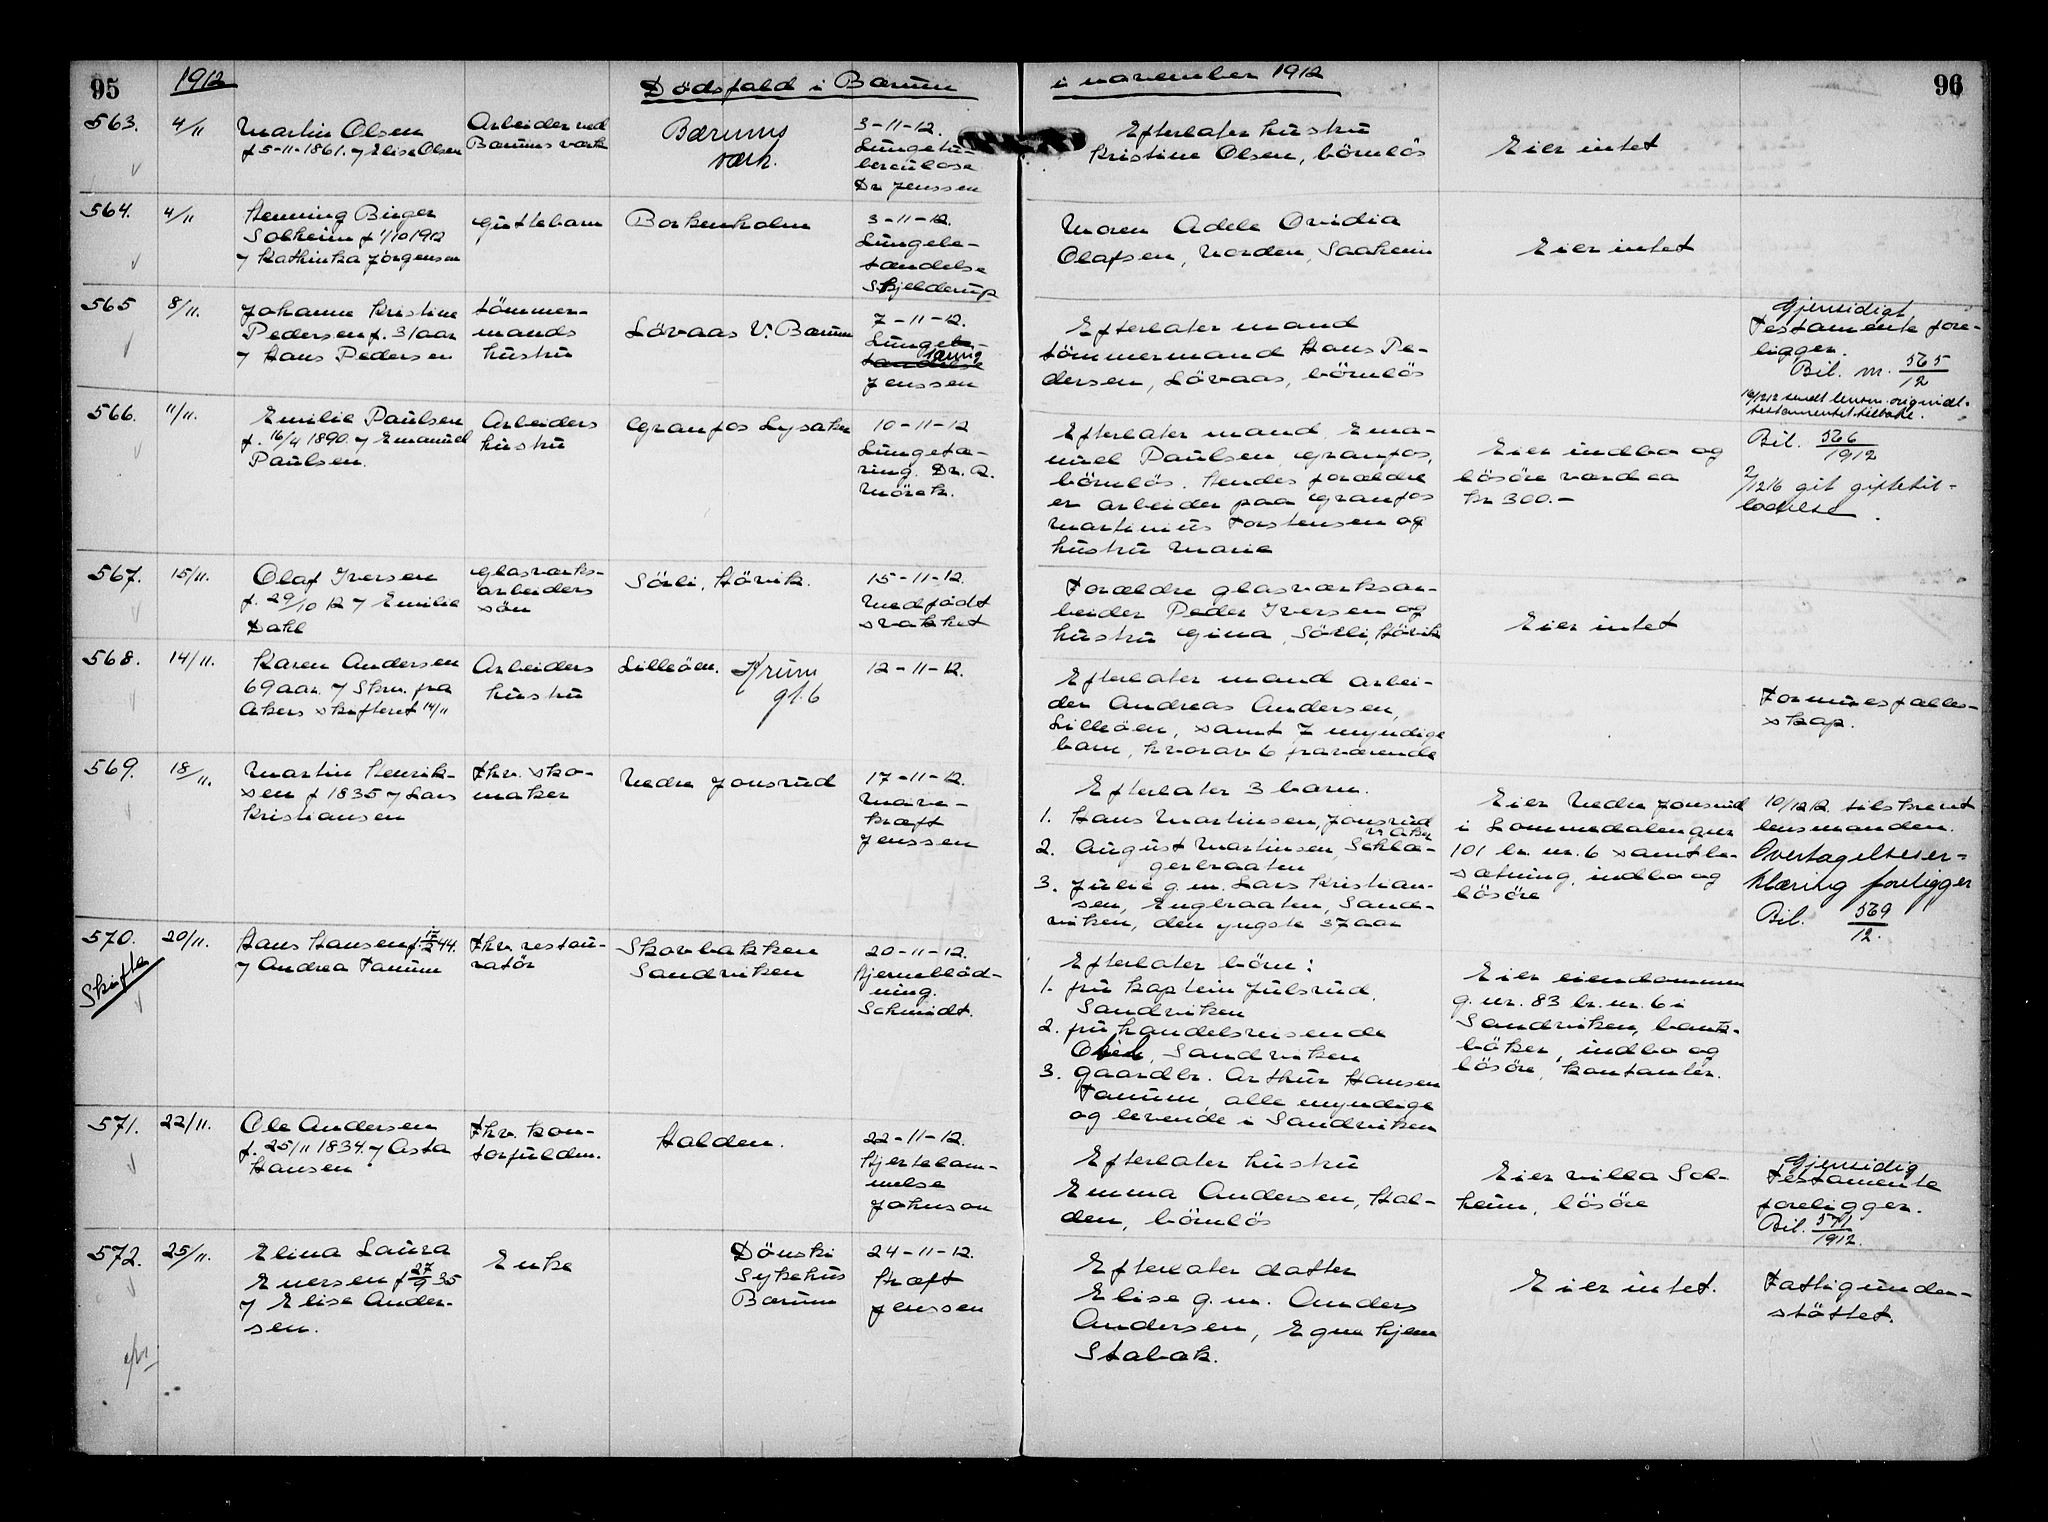 95
1912
Dödsfald i Bærum
i november 1912
96
563.
4/11
Martin Olsen
f 5-11-1861. y Elise Olsen
Arbeider ved
Bærums værk
Bærums
værk.
3-11-12.
Lungetu-
berculose
Dr Jenssen
Efterlater hustru
Kristine Olsen, börnlös
Eier intet
564.
4/11
Henning Birger
Solheim f 1/10 1912
y Kathinka Jörgensen
Guttebarn
Borkenholm
3-11-12.
Lungebe-
tændelse
Skjelderup
Moren Adele Ovidia
Olafsen, Norden, Saaheim
Eier intet
565
8/11.
Johanne Kristine
Pedersen f. 31 aar
y Hans Pedersen
Tömmer-
mands
hustru
Lövaas V. Bærum
7-11-12.
Lungebe-
tændelse
tæring
Jenssen
Efterlater mand
tömmermand Hans Pe-
dersen, Lövaas, börnlös
Gjensidigt
Testamente fore-
ligger.
Bil. nr. 565/12
16/12 12 sendt lensm. original-
testamentet tilbake.
566.
11/11.
Emilie Paulsen
f. 16/4 1890. y Emanuel
Paulsen.
Arbeiders
hustru
Granfos Lysaker
10-11-12
Lungetæ-
ring. Dr. A.
Mörch.
Efterlater mand, Ema-
nuel Paulsen, Granfos,
börnlös. Hendes forældre
er arbeider paa Granfos
Martinius Torstensen og
hustru Marie
Eier indbo og
lösöre værd ca
kr 300.-
Bil. 566/1912
2/12 16 git giftetil-
ladelse.
567.
15/11.
Olaf Iversen
f. 29/10 12 y Emilie
Dahl
Glasværks-
arbeiders
sön
Sörli, Hövik.
15-11-12.
Medfödt
svakhet
Forældre glasværksar-
beider Peder Iversen og
hustru Gina, Sörli, Hövik
Eier intet
568.
14/11.
Karen Andersen
69 aar. y Skr. fra
Akers skifteret 14/11
Arbeiders
hustru
Lilleöen.
12-11-12.
Efterlater mand arbei-
der Andreas Andersen,
Lilleöen, samt 7 myndige
barn, hvorav 6 fraværende
Formuesfælles-
skap.
569.
18/11.
Martin Henrik-
sen f 1835 y Lars
Kristiansen
Fhv. sko-
maker
Nedre Jonsrud
17-11-12.
Mave-
kræft
Jenssen
Efterlater 3 barn.
1. Hans Martinsen, Jonsrud
V. Aker
2. August Martinsen, Schlæ-
gerbraaten
3. Julie g.m. Lars Kristian-
sen, Engbraaten, Sand-
viken, den yngste 37 aar
Eier Nedre Jonsrud
i Lommedalen gnr
101 br. nr. 6 samt be-
sætning, indbo og
lösöre
10/12 12. tilskrevet
lensmanden.
Overtagelseser-
klæring foreligger
Bil. 569/12.
570.
Skifte
20/11.
Hans Hansen f. 17/2 44.
y Andrea Tanum
Fhv. restau-
ratör
Skovbakken
Sandviken
20-11-12.
Hjerneblöd-
ning.
Schmidt.
Efterlater börn:
1. fru kaptein Julsrud,
Sandviken
2. fru handelsreisende
Sandviken
3. gaardbr. Arthur Hansen
Tanum, alle myndige
og levende i Sandviken
Eier eiendommen
g. nr. 83 br. nr. 6 i
Sandviken, bank-
böker, indbo og
lösöre, kontanter.
571.
22/11.
Ole Andersen
f. 25/11 1834. y Asta
Hansen
Fhv. kon-
torfuldm.
Halden.
22-11-12.
Hjertelam-
melse
Johnson
Efterlater hustru
Emma Andersen, Hal-
den, börnlös
Eier villa Sol-
heim, lösöre
Gjensidig
Testamente
foreligger.
Bil. 571/1912.
572.
25/11.
Elina Laura
Eversen f 27/9 35
y Elise Ander-
sen.
Enke
Dönski
Sykehus
Bærum
24-11-12.
Kræft
Jenssen
Efterlater datter
Elise g.m. Anders
Andersen, Egne hjem
Stabæk.
Eier intet.
Fattigunder-
stöttet.